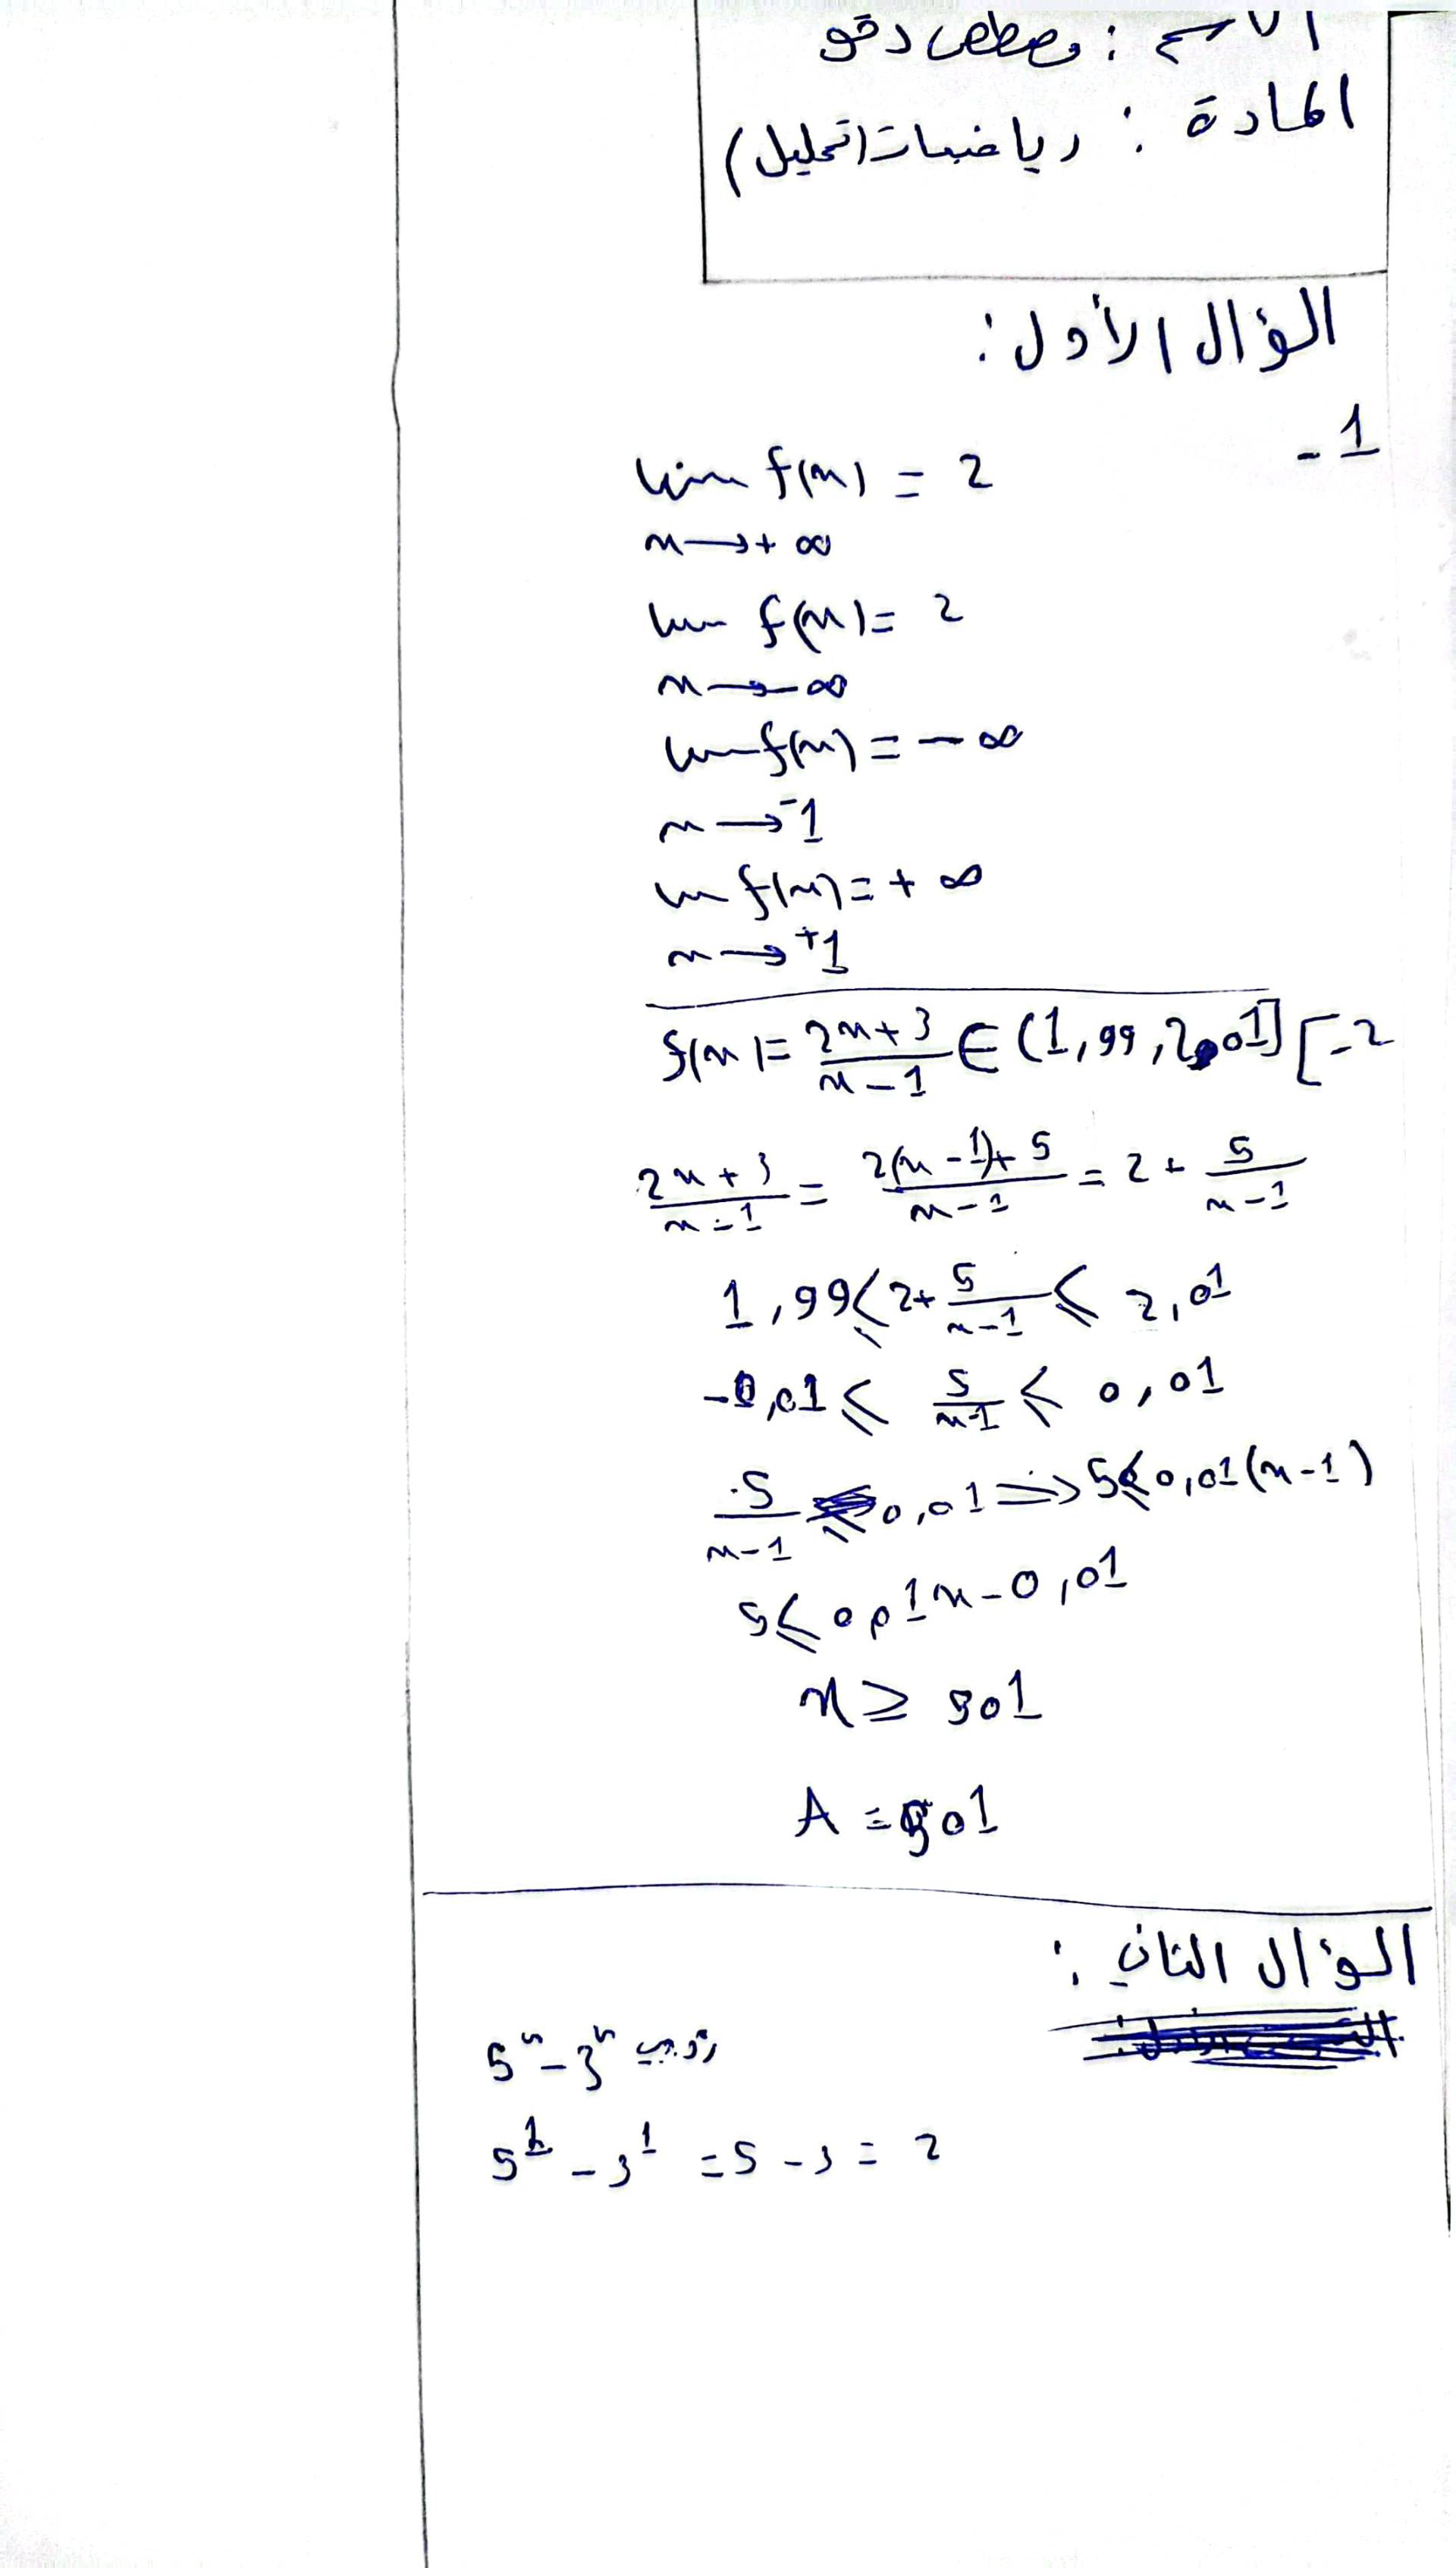 الاسم : مصطفى دقو
المادة : رياضيات (تحليل)
السؤال الأول :
1 -
lim f(x) = 2
x → + ∞
lim f(x) = 2
x → - ∞
lim f(x) = - ∞
x → -1
lim f(x) = + ∞
x → +1
2 - f(x) = (2x + 3)/(x - 1) ∈ (1,99 , 2,01)
(2x + 3)/(x - 1) = (2(x - 1) + 5)/(x - 1) = 2 + 5/(x - 1)
1,99 ≤ 2 + 5/(x - 1) ≤ 2,01
-0,01 ≤ 5/(x - 1) ≤ 0,01
5/(x - 1) ≤ 0,01 ⇒ 5 ≤ 0,01(x - 1)
5 ≤ 0,01x - 0,01
x ≥ 501
A = 501
السؤال الثاني :
5ⁿ - 3ⁿ زوجي
5¹ - 3¹ = 5 - 3 = 2